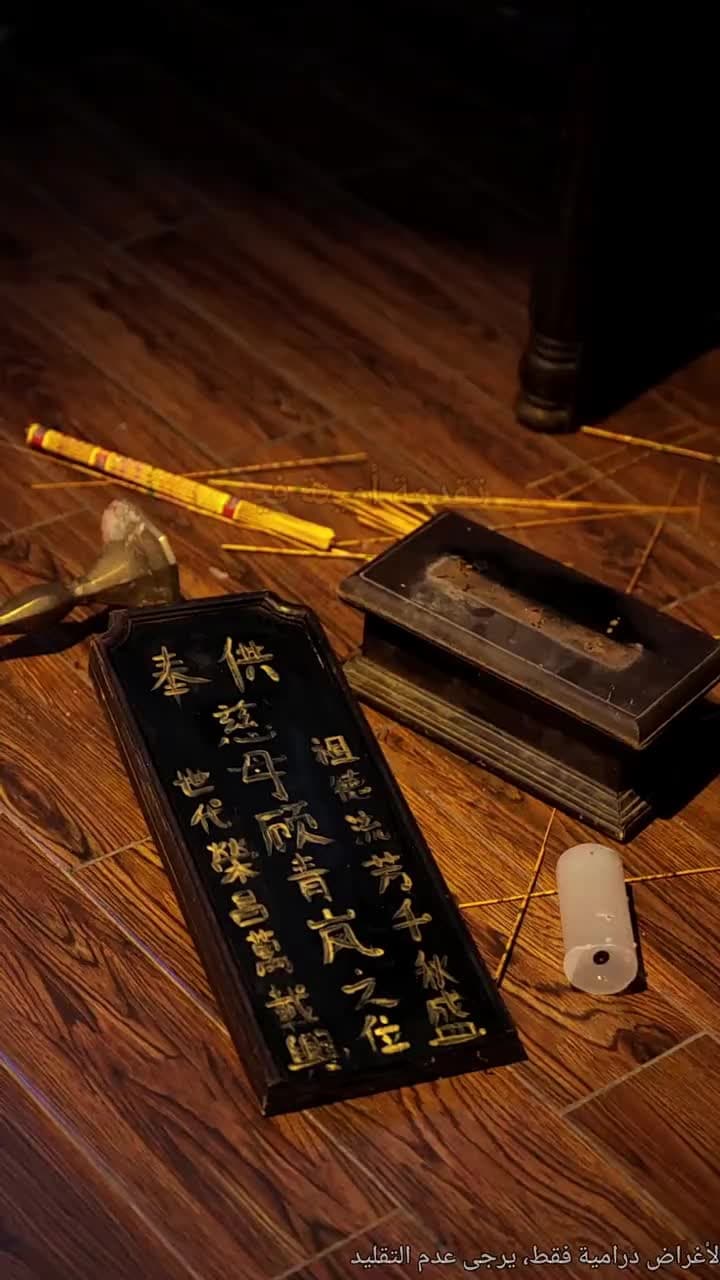 供奉
祖德流芳千秋盛
慈母顾青岚之位
世代榮昌萬載興
لأغراض درامية فقط، يرجى عدم التقليد